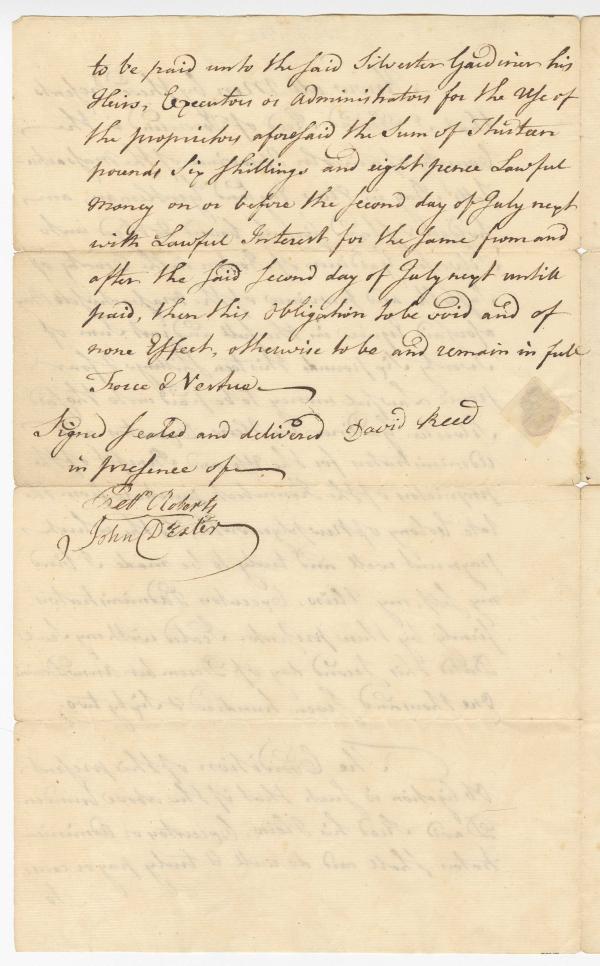 to be paid unto the said Silvester Gardiner his
Heirs, Executors or Administrators for the Use of
the proprietors aforesaid the Sum of Thirteen
pounds Six Shillings and eight pence Lawful
Money on or before the second day of July next
with Lawful Interest for the same from and
after the said second day of July next untill
paid, then this obligation to be void and of
none Effect, otherwise to be and remain in full
Force & Vertue
Signed sealed and delivered David Reed
in presence of
Roberts
John Dexter